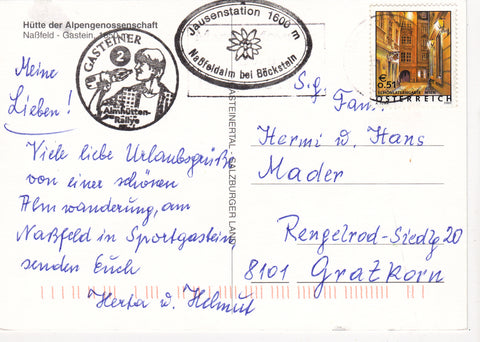 Hütte der Alpengenossenschaft
Naßfeld - Gastein,
GASTEINER
2
Almhütten-
Rallye
Jausenstation 1600 m
Naßfeldalm bei Böckstein
€ 0.51
SCHÖNLATERNGASSE WIEN
ÖSTERREICH
GASTEINERTAL, SALZBURGER LAND
Meine
Lieben!
Viele liebe Urlaubsgrüße
von einer schönen
Almwanderung, am
Naßfeld in Sportgastein
senden Euch
Herta u. Helmut
S.g. Fam.
Hermi u. Hans
Mader
Rengelrod-Siedlg 20
8101 Gratkorn